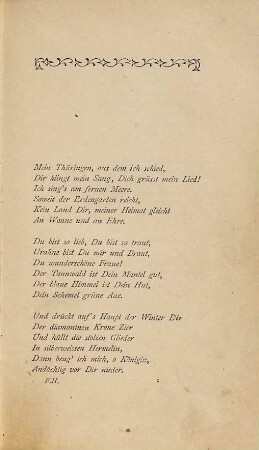 Mein Thüringen, aus dem ich schied,
Dir klingt mein Sang, Dich grüsst mein Lied!
Ich sing's am fernen Meere.
Soweit der Erdengarten reicht,
Kein Land Dir, meiner Heimat gleicht
An Wonne und an Ehre.
Du bist so lieb, Du bist so traut,
Urahne bist Du mir und Braut,
Du wunderschöne Fraue!
Der Tannwald ist Dein Mantel gut,
Der blaue Himmel ist Dein Hut,
Dein Schemel grüne Aue.
Und drückt auf's Haupt der Winter Dir
Der diamantnen Krone Zier
Und hüllt die stolzen Glieder
In silberweissen Hermelin,
Dann beug' ich mich, o Königin,
Andächtig vor Dir nieder.